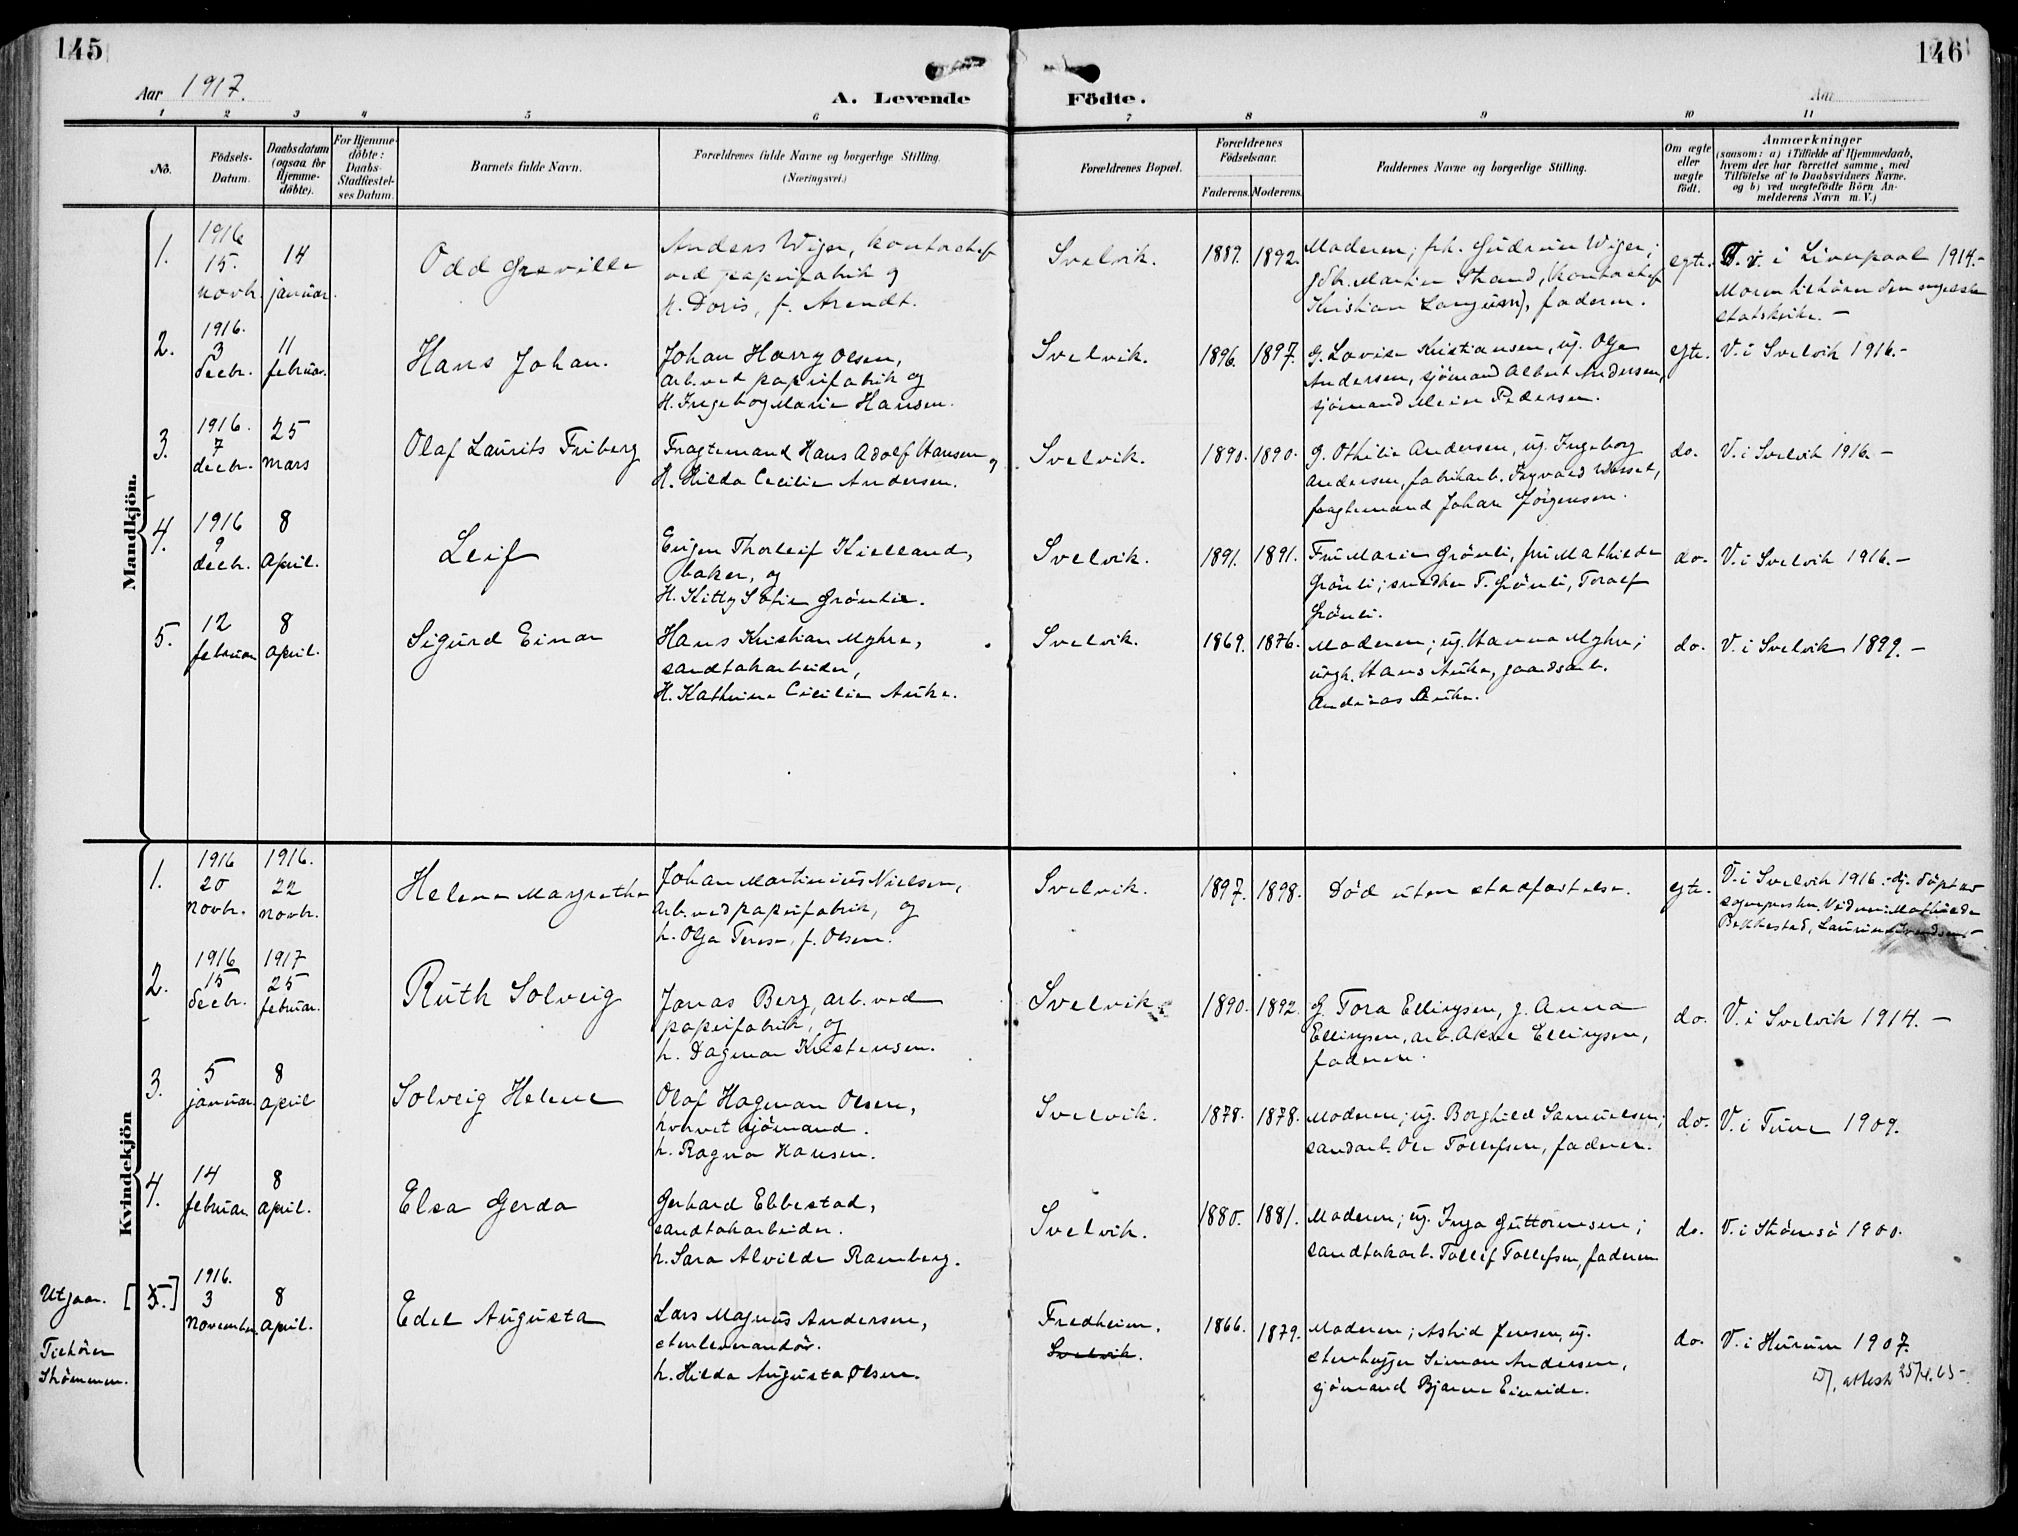 145
146
Aar 1917.
A. Levende
Födte.
Aar
1 2 3 4 5 6 7 8 9 10 11
No.
Födsels-
Datum.
Daabsdatum
(ogsaa for
Hjemme-
döbte).
For Hjemme-
döbte:
Daabs-
Stadfæstel-
ses Datum.
Barnets fulde Navn.
Forældrenes fulde Navne og borgerlige Stilling.
(Næringsvei.)
Forældrenes Bopæl.
Forældrenes
Födselsaar.
Faderens. Moderens.
Faddernes Navne og borgerlige Stilling.
Om ægte
eller
uægte
födt.
Anmærkninger
(saasom: a) i Tilfælde af Hjemmedaab,
hvem der har forrettet samme, med
Tilföielse af to Daabsvidners Navne,
og b) ved uægtefödte Börn An-
melderens Navn m. V.)
Mandkjön.
1.
1916
15.
novb.
14
januar.
Odd Greville
Anders Wiger, kontorchef
ved papirfabrik og
h. Doris, f. Arendt.
Svelvik.
1889. 1892.
Moderen; frk. Gudrun Wiger;
Martin Strand, kontorchef
Kristian faderen.
egte.
V. i Liverpool 1914.-
Moren tilhører den engelske
statskirke. -
2.
1916.
3
decbr.
11
februar.
Hans Johan.
Johan Harry Olsen,
arb. ved papirfabrik og
H. Ingeborg Marie Hansen.
Svelvik.
1896. 1897.
G. Lovise Kristiansen, ug. Olga
Andersen, sjömand Albert Andersen,
sjömand Meier Pedersen.
egte.
V. i Svelvik 1916.-
3.
1916.
7
decbr.
25
mars
Olaf Laurits Friberg
Fragtemand Hans Adolf Hansen og
H. Hilda Cecilie Andersen.
Svelvik.
1890. 1890.
G. Othilie Andersen, ug. Ingeborg
Andersen, fabrikarb. Ingvald
fragtemand Johan Jörgensen.
do.
V. i Svelvik 1916.-
4.
1916
9
decbr.
8
April.
Leif
Eugen Thorleif Kielland,
baker, og
H. Kitty Sofie Grönlie.
Svelvik.
1891. 1891.
Fru Marie Grönli, fru Mathilde
Grönli; snedker T. Grönli, Toralf
Grönli.
do.
V. i Svelvik 1916.-
5.
12
februar
8
april.
Sigurd Einar
Hans Kristian Myhre,
sandtakarbeider,
H. Kathrine Cicilie Auke.
Svelvik.
1869. 1876.
Moderen; ug. Hanna Myhre;
ungk. Hans Auke, gaardsarb.
Andreas Auke.
do.
V. i Svelvik 1899.-
Kvindekjön
1.
1916
20
novbr.
1916.
22
novbr.
Helene Margrethe
Johan Martinius Nielsen,
arb. ved papirfabrik, og
h. Olga Terese, f. Olsen.
Svelvik.
1897. 1898.
Död uten stadfæstelse.
egte.
V. i Svelvik 1916.- Hj. döpt av
sognepresten. Vidner: Mathilde
Bekkestad,
2.
1916
15
decbr.
1917
25
februar.
Ruth Solveig
Jonas Berg, arb. ved
papirfabrik, og
h. Dagmar Kristensen.
Svelvik.
1890. 1892.
G. Tora Ellingsen, g. Anna
Ellingsen, arb. Aksel Ellingsen,
faderen.
do.
V. i Svelvik 1914.-
3.
5
januar
8
april
Solveig Helene
Olaf Hagman Olsen,
sjömand.
h. Ragna Hansen.
Svelvik.
1878. 1878.
Moderen; ug. Borghild Samuelsen;
sandarb. Ole Tollefsen, faderen.
do.
V. i Tune 1909.
4.
14
februar
8
april.
Elsa Gerda
Gerhard Ebbestad,
sandtakarbeider.
h. Sara Alvilde Ramberg.
Svelvik.
1880. 1881.
Moderen; ug. Inga Guttormsen;
sandtakarb. Tollef Tollefsen, faderen
do.
V. i Strömsö 1900.
Utgaar.
Tilhörer
Strömmen.
[5.]
1916.
3
November.
8
april.
Edel Augusta
Lars Magnus Andersen,
stenleverandör.
h. Hilda Augusta Olsen.
Fredheim.
Svelvik.
1866. 1879.
Moderen; Astrid Jensen, ug.
stenhugger Simon Andersen,
sjömand Bjarne Einride.
do.
V. i Hurum 1907.
attest